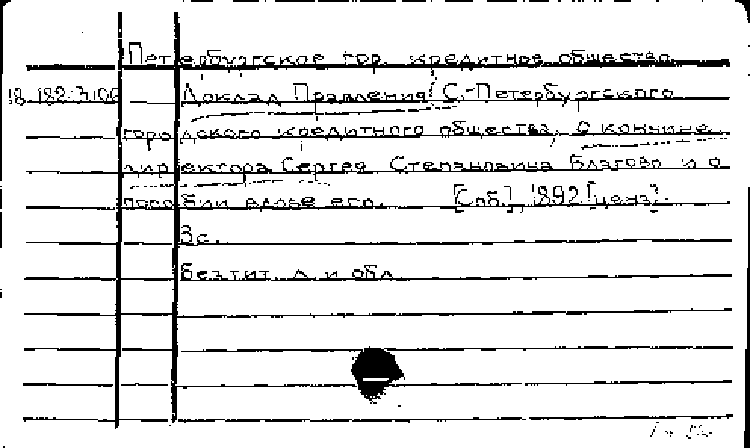 Петербургское гор. кредитное общество
18.182.3.106 Доклад Правления С.-Петербургского
городского кредитного общества. О кончине
директора Сергея Степановича Благово и о
пособии вдове его. [Спб.], 1892 [ценз].
3с.
Без тит. л. и обл.